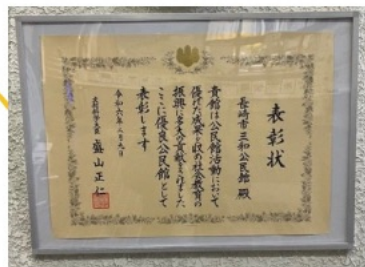 表彰状
長崎市三和公民館 殿
貴館は公民館活動において
優れた成果を収め社会教育の
振興に多大な貢献をされました
ここに優良公民館として
表彰します
令和六年二月九日
文部科学大臣 盛山正仁